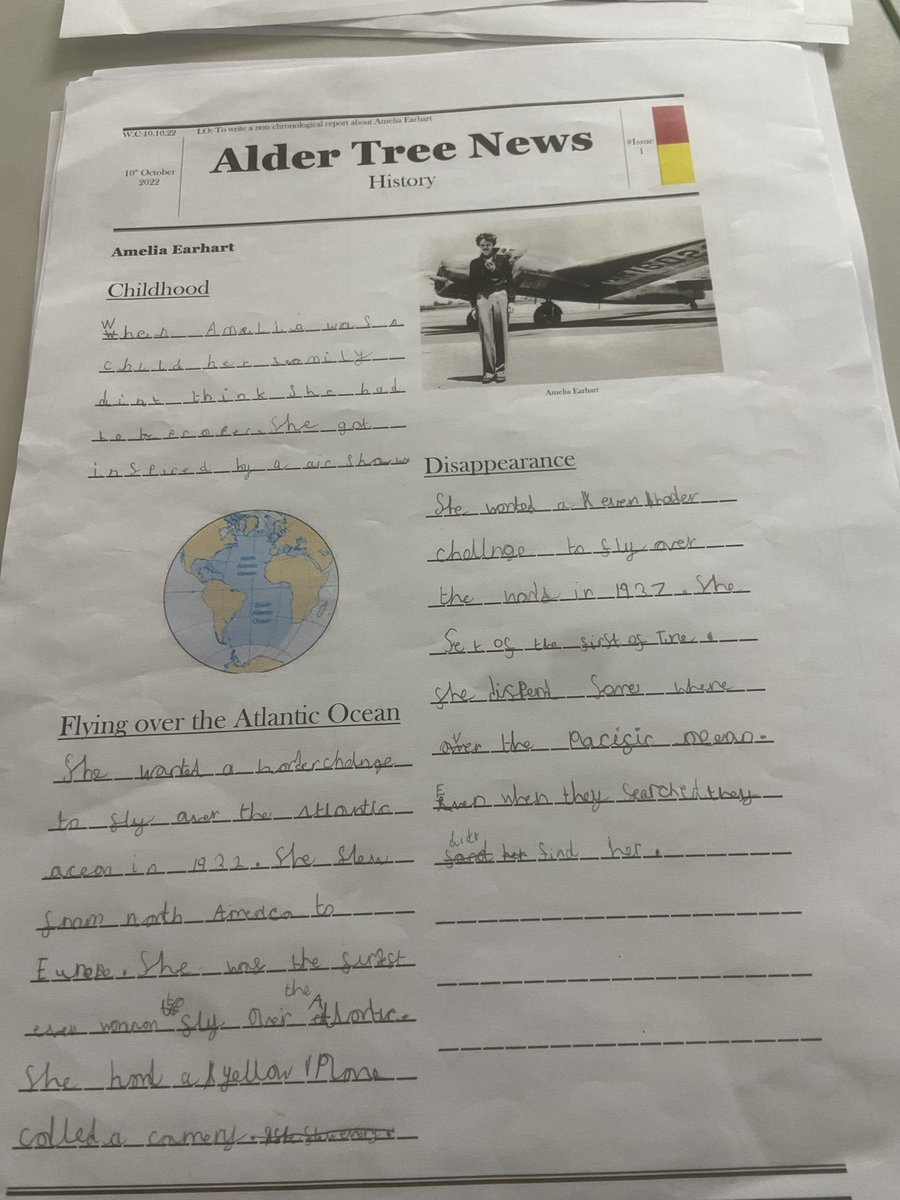 W.C 10.10.22
LO: To write a non chronological report about Amelia Earhart
10th October
2022
Alder Tree News
History
#Issue
1
Amelia Earhart
Childhood
When Amelia was a
child her family
dint think she had
to be proper. She got
inspired by a air show
Amelia Earhart
North
Atlantic
Ocean
South
Atlantic
Ocean
Flying over the Atlantic Ocean
She wanted a
to fly over the Atlantic
ocean in 1932. She flew
from north America to
Europe. She was the furst
ever woman to fly over the Atlantic.
She had a yellow plane
called a camery.
Disappearance
She wanted a even harder
challnge to fly over
the in 1937. She
set of the first of June.
she dispend some where
over the Pacific ocean.
Even when they searched they
didt find her.